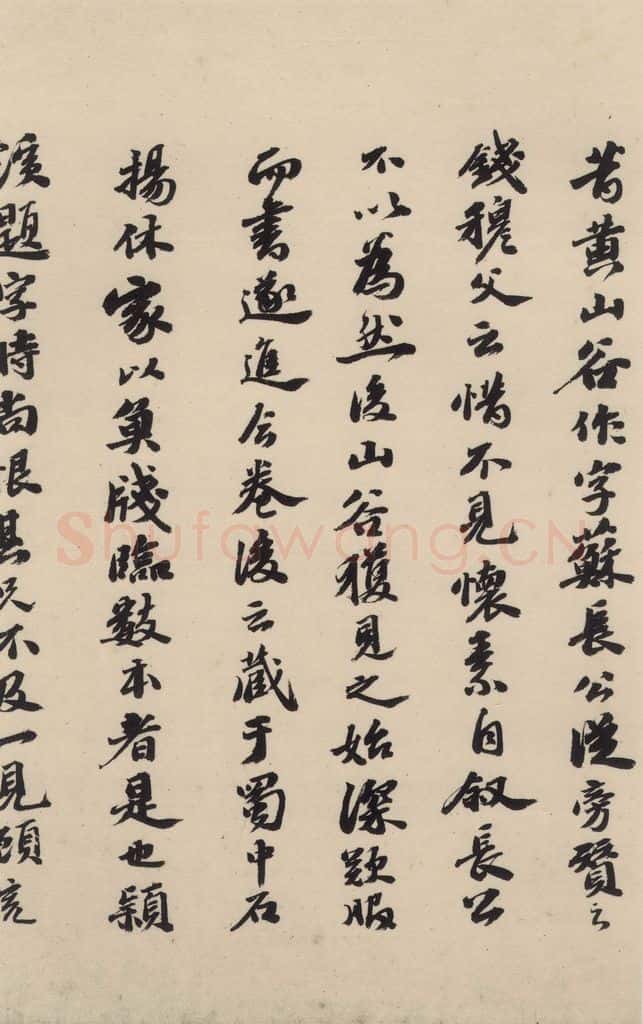 昔黄山谷作字蘇長公從旁贊之
錢穆父云惜不見懷素自叙長公
不以為然後山谷獲見之始深歎服
而書遂進今卷後云藏于蜀中石
揚休家以魚牋臨數本者是也穎
濱題字時尚恨其兄不及一見顧
Shufawang.CN